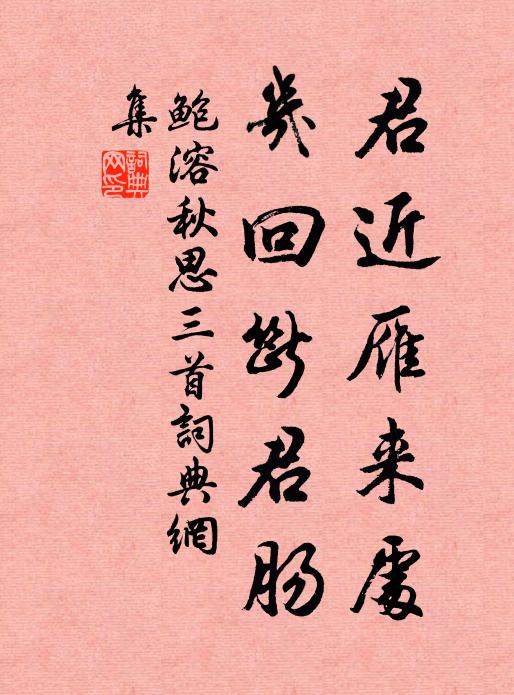 君近雁来處
幾回斷君腸
鮑溶秋思三首詞典網
集
詞典網印